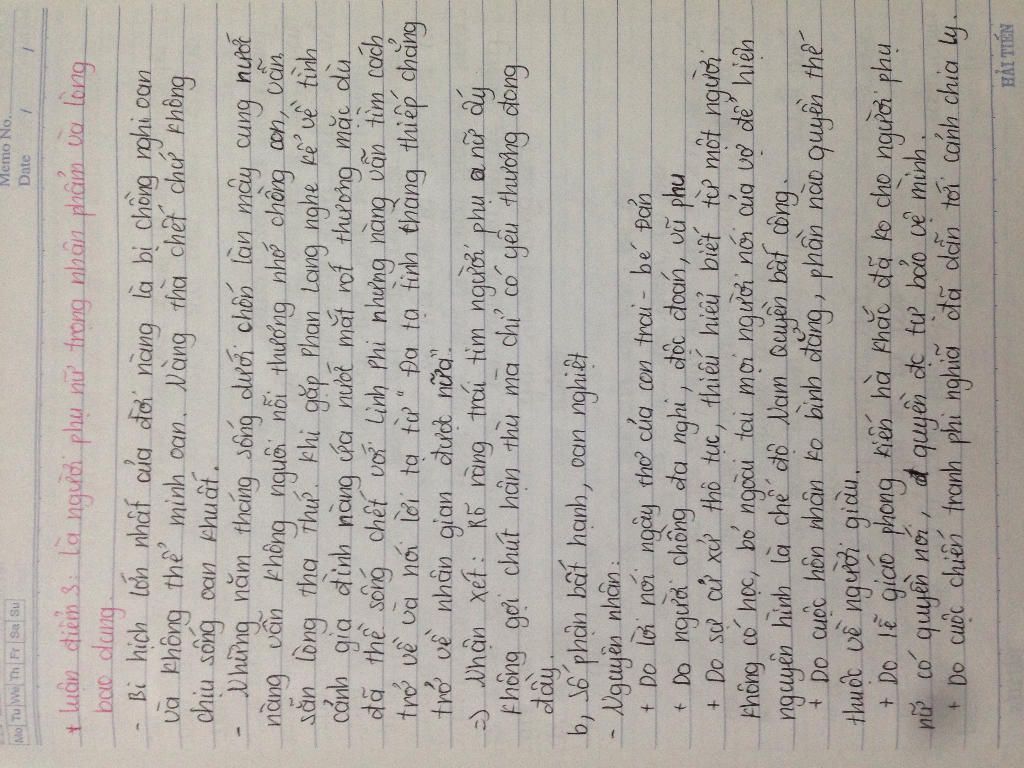 Memo No.
Date / /
Mo Tu We Th Fr Sa Su
+ Luận điểm 3: là người phụ nữ trọng nhân phẩm và lòng
bao dung.
- Bi kịch lớn nhất của đời nàng là bị chồng nghi oan
và không thể minh oan. Nàng thà chết chứ không
chịu sống oan khuất.
- Những năm tháng sống dưới chốn làn mây cung nước
nàng vẫn không nguôi nỗi thương nhớ chồng con, vẫn
sẵn lòng tha thứ. khi gặp Phan Lang nghe kể về tình
cảnh gia đình nàng ứa nước mắt rất thương mặc dù
đã thề sống chết với Linh Phi nhưng nàng vẫn tìm cách
trở về và nói lời tạ từ "Đa tạ tình thằng thiếp chẳng
trở về nhân gian được nữa".
=> Nhận xét: Rõ ràng trái tim người phụ nữ ấy
không gợi chút hận thù mà chỉ có yêu thương đong
đầy.
b, Số phận bất hạnh, oan nghiệt
- Nguyên nhân:
+ Do lời nói ngây thơ của con trai - bé Đản
+ Do người chồng đa nghi, độc đoán, vũ phu
+ Do sự cư xử thô tục, thiếu hiểu biết từ một người
không có học, bỏ ngoài tai mọi người nói của vợ để hiện
nguyên hình là chế độ Nam Quyền bất công.
+ Do cuộc hôn nhân ko bình đẳng, phần nào quyền thế
thuộc về người giàu.
+ Do lễ giáo phong kiến hà khắc đã ko cho người phụ
nữ có quyền nói, quyền đc tự bảo vệ mình.
+ Do cuộc chiến tranh phi nghĩa đã dẫn tới cảnh chia ly.
HẢI TIẾN